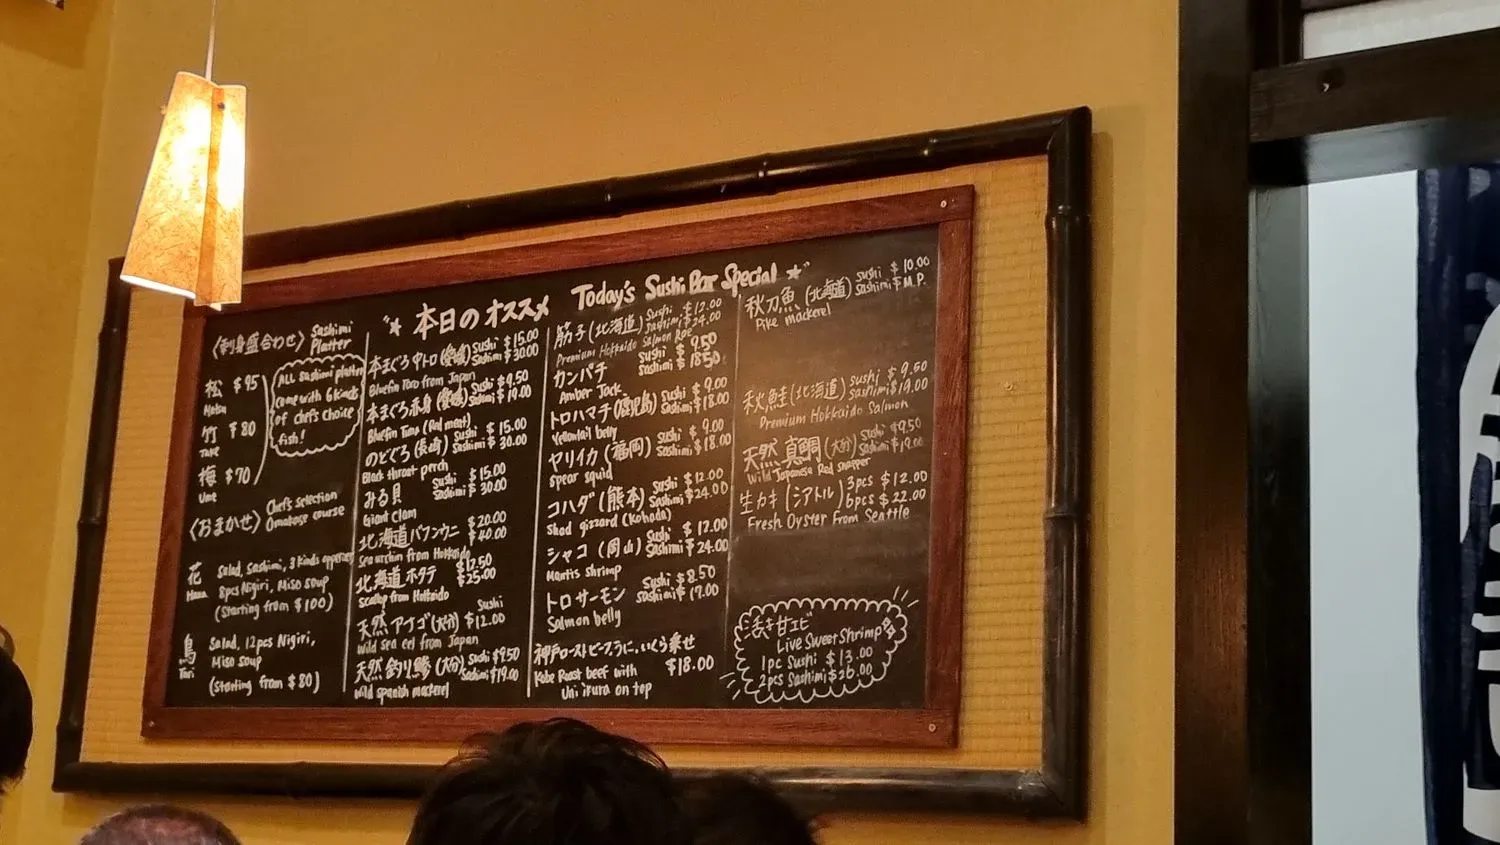 "★ 本日のオススメ Today's Sushi Bar Special ★"
〈刺身盛合わせ〉 Sashimi Platter
松 $95
Matsu
竹 $80
Take
梅 $70
Ume
ALL Sashimi platter
come with 6 kinds
of chef's choice
fish!
〈おまかせ〉 Chef's selection
Omakase course
花 Salad, Sashimi, 3 kinds appetizer
Hana 8pcs Nigiri, Miso soup
(Starting from $100)
鳥 Salad, 12pcs Nigiri,
Tori Miso soup
(Starting from $80)
本まぐろ中トロ (愛媛) Sushi $15.00
Sashimi $30.00
Bluefin Toro from Japan
本まぐろ赤身 (愛媛) Sushi $9.50
Sashimi $19.00
Bluefin Tuna (Red meat)
のどぐろ (長崎) Sushi $15.00
Sashimi $30.00
Black throat perch
みる貝 Sushi $15.00
Sashimi $30.00
Giant Clam
北海道バフンウニ $20.00
$40.00
Sea urchin from Hokkaido
北海道ホタテ $12.50
$25.00
Scallop from Hokkaido
天然アナゴ (大分) Sushi $12.00
Wild Sea eel from Japan
天然釣り鯵 (大分) Sushi $9.50
Sashimi $19.00
Wild spanish mackerel
筋子 (北海道) Sushi $12.00
Sashimi $24.00
Premium Hokkaido Salmon Roe
カンパチ Sushi $9.50
Sashimi $18.50
Amber Jack
トロハマチ (鹿児島) Sushi $9.00
Sashimi $18.00
Yellowtail belly
ヤリイカ (福岡) Sushi $9.00
Sashimi $18.00
Spear squid
コハダ (熊本) Sushi $12.00
Sashimi $24.00
Shad gizzard (Kohada)
シャコ (岡山) Sushi $12.00
Sashimi $24.00
Mantis shrimp
トロサーモン Sushi $8.50
Sashimi $17.00
Salmon belly
神戸ローストビーフうに、いくら乗せ
Kobe Roast beef with $18.00
Uni ikura on top
秋刀魚 (北海道) Sushi $10.00
Sashimi $M.P.
Pike mackerel
秋鮭 (北海道) Sushi $9.50
Sashimi $19.00
Premium Hokkaido Salmon
天然真鯛 (大分) Sushi $9.50
Sashimi $19.00
Wild Japanese Red snapper
生カキ (シアトル) 3pcs $12.00
6pcs $22.00
Fresh Oyster from Seattle
活き甘エビ
Live Sweet Shrimp
1pc Sushi $13.00
2pcs Sashimi $26.00